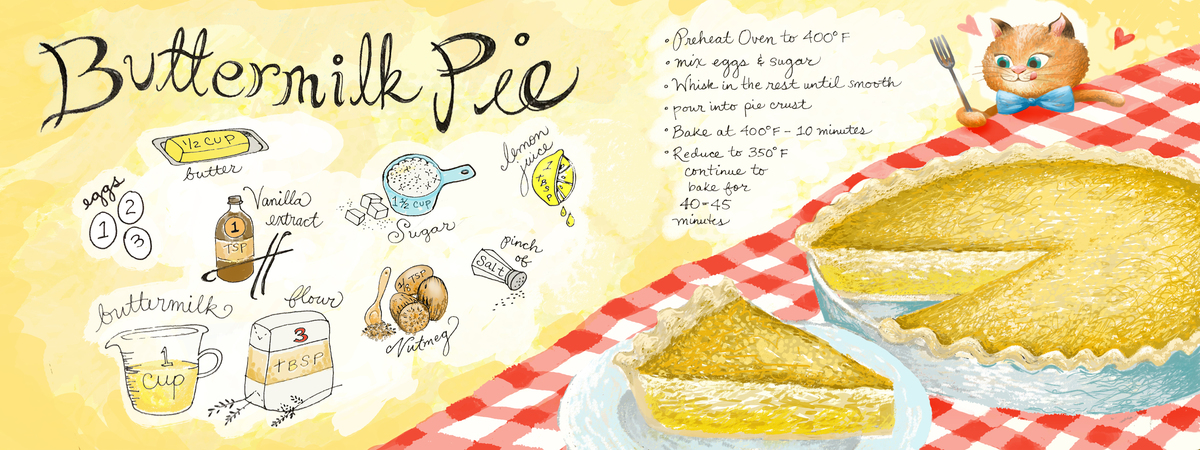 Buttermilk Pie
1/2 CUP
butter
eggs
1
2
3
Vanilla
extract
1
TSP
1 1/2 CUP
Sugar
lemon
juice
1
TBSP
pinch
of
Salt
buttermilk
1
Cup
flour
3
TBSP
1/8 TSP
Nutmeg
• Preheat Oven to 400°F
• mix eggs & sugar
• Whisk in the rest until smooth
• pour into pie crust
• Bake at 400°F - 10 minutes
• Reduce to 350°F
continue to
bake for
40-45
minutes